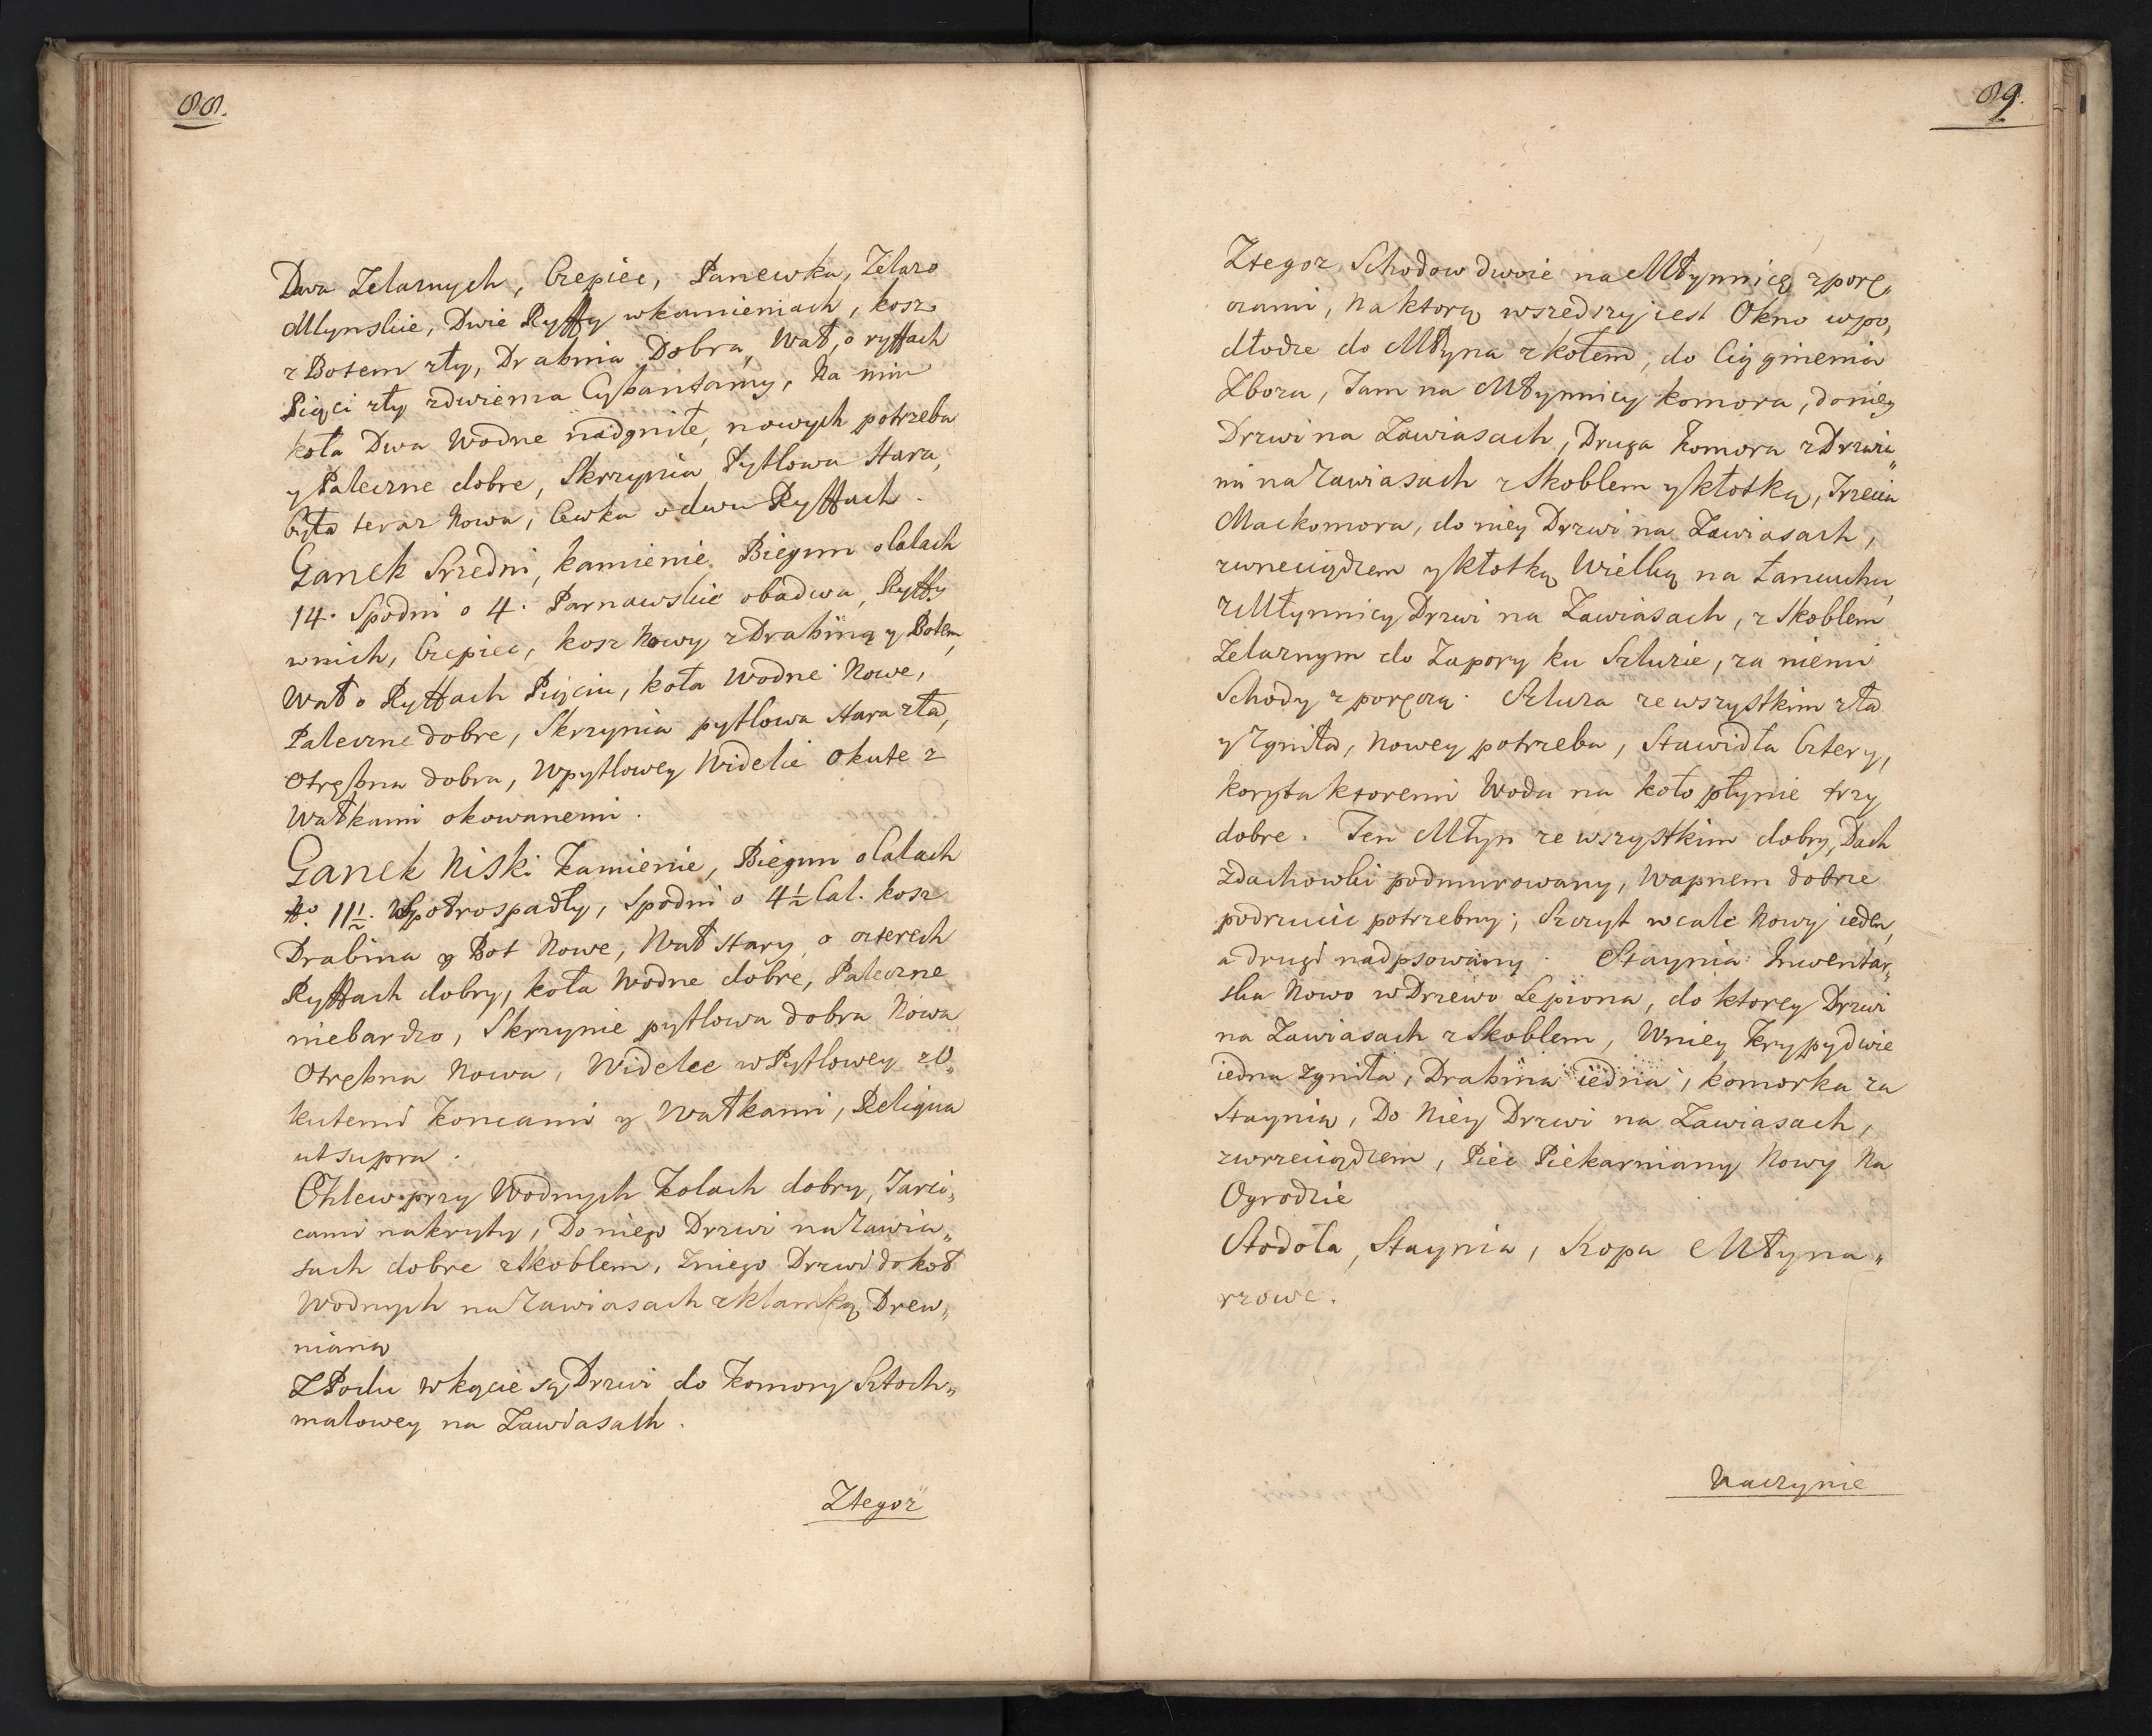 88.
Dwa Zelaznych, Czepiec, Panewka, Zelazo
Mlynskie, Dwie Ryffy w kamieniach, kosz
z Botem zły, Drabnia Dobra, Wał, o ryffach
Pięci zły zdwiema Cybantamy, Na nim
koła Dwa Wodne nadgniłe, nowych potrzeba
y Paleczne dobre, Skrzynia Pytlowa Stara,
Cyta teraz Nowa, Cewka o dwu Ryffach.
Ganek Srzedni, kamienie Biegun o Calach
14. Spodni o 4. Parnawskie obadwa, Ryffy
w nich, Czepiec, kosz Nowy z Drabiną y Botem,
Wał o Ryffach Pięciu, koła Wodne Nowe,
Paleczne dobre, Skrzynia pytlowa Stara zła,
Otrębna dobra, W pytlowey Widelie Okute z
Wałkami okowanemi.
Ganek Niski Kamienie, Biegun o Calach
No. 11½. Wpołrospadły, Spodni o 4½ Cal. kosz
Drabina y Bot Nowe, Wał Stary, o czterech
Ryffach dobry, koła Wodne dobre, Paleczne
niebardzo, Skrzynie pytlowa dobra Nowa
Otrębna Nowa, Widelce w Pytlowey z O„
kutemi Koncami y Wałkami, Reliqua
ut supra.
Chlew przy Wodnych Kolach dobry, Tarci„
cami nakryty, Do niego Drzwi na Zawia„
sach dobre z Skoblem, Zniego Drzwi do koł
Wodnych na Zawiasach z klamką Drew„
nianą
Z Podu w kącie są Drzwi do Komory Sztoch„
malowey na Zawiasach.
Ztegoż
89.
Ztegoz Schodow dwoie na Młynnicę z porę„
czami, Na ktorą wszedszy iest Okno w po„
dłodze do Młyna z kołem, do Ciągnienia
Zboza, Tam na Młynnicy komora, do niey
Drzwi na Zawiasach, Druga Komora z Drzwia„
mi na Zawiasach z Skoblem y kłotką, Trzecia
Mackomora, do niey Drzwi na Zawiasach,
z wneciądzem y kłotką Wielką na Łancuchu,
z Młynnicy Drzwi na Zawiasach, z Skoblem
Zelaznym do Zapory ku Szluzie, za niemi
Schody z poręczą. Szluza ze wszystkim zła
y Zgniła, Nowey potrzeba, Stawidła Cztery,
koryta ktoremi Woda na koło płynie trzy
dobre. Ten Młyn ze wszystkim dobry, Dach
z dachowki podmurowany, Wapnem dobrze
podrzucic potrzebny; Szczyt wcale Nowy ieden,
a drugi nadpsowany. Staynia Inwentar„
ska Nowo w Drzewo Lepiona, do ktorey Drzwi
na Zawiasach z Skoblem, W niey Krypy dwie
iedna Zgniła, Drabina iedna, komorka za
Staynią, Do Niey Drzwi na Zawiasach,
z wrzeciądzem, Piec Piekarniany Nowy Na
Ogrodzie
Stodoła, Staynia, Szopa Młyna„
rzowe.
Naczynie